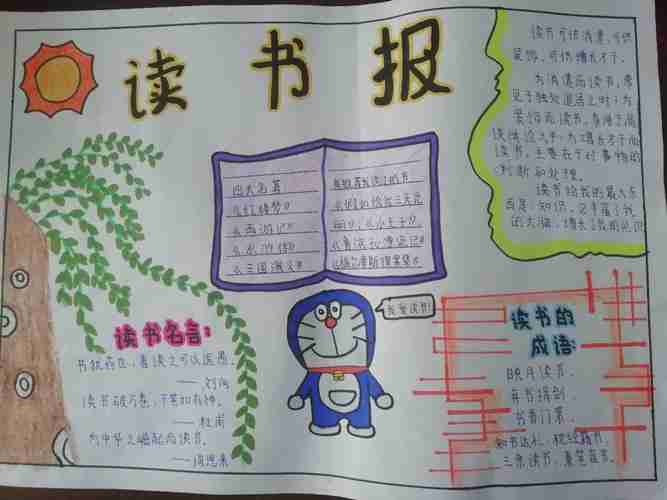 读书报
读书可怡消遣,可供
装饰,可供增长才干。
为消遣而读书,常
见于独处退居之时;为
装饰而读书,
高谈阔论之中;为增长才干而
读书,主要在于对事物的
判断和处理。
读书给我的最大东
西是:知识,
的大脑,增长了我的见识
四大名著
《红楼梦》
《西游记》
《水浒传》
《三国演义》
《假如给我三天光
明》,《小王子》
《鲁滨孙漂流记》
《福尔摩斯探案集》
我爱读书!
读书名言:
书犹药也,善读之可以医愚。
——刘向
读书破万卷,下笔如有神。
——杜甫
为中华之崛起而读书。
——周恩来
读书的
成语:
映月读书、
弃书捐剑、
书香门第、
知书达礼、枕经籍书、
三余读书、